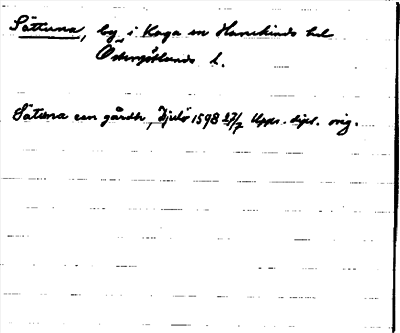 Sättuna, by i Kaga sn Hanekinds hd
Östergötlands l.
Sätuna een gårdh, Djulö 1598 27/7 Upps. dipl. orig.